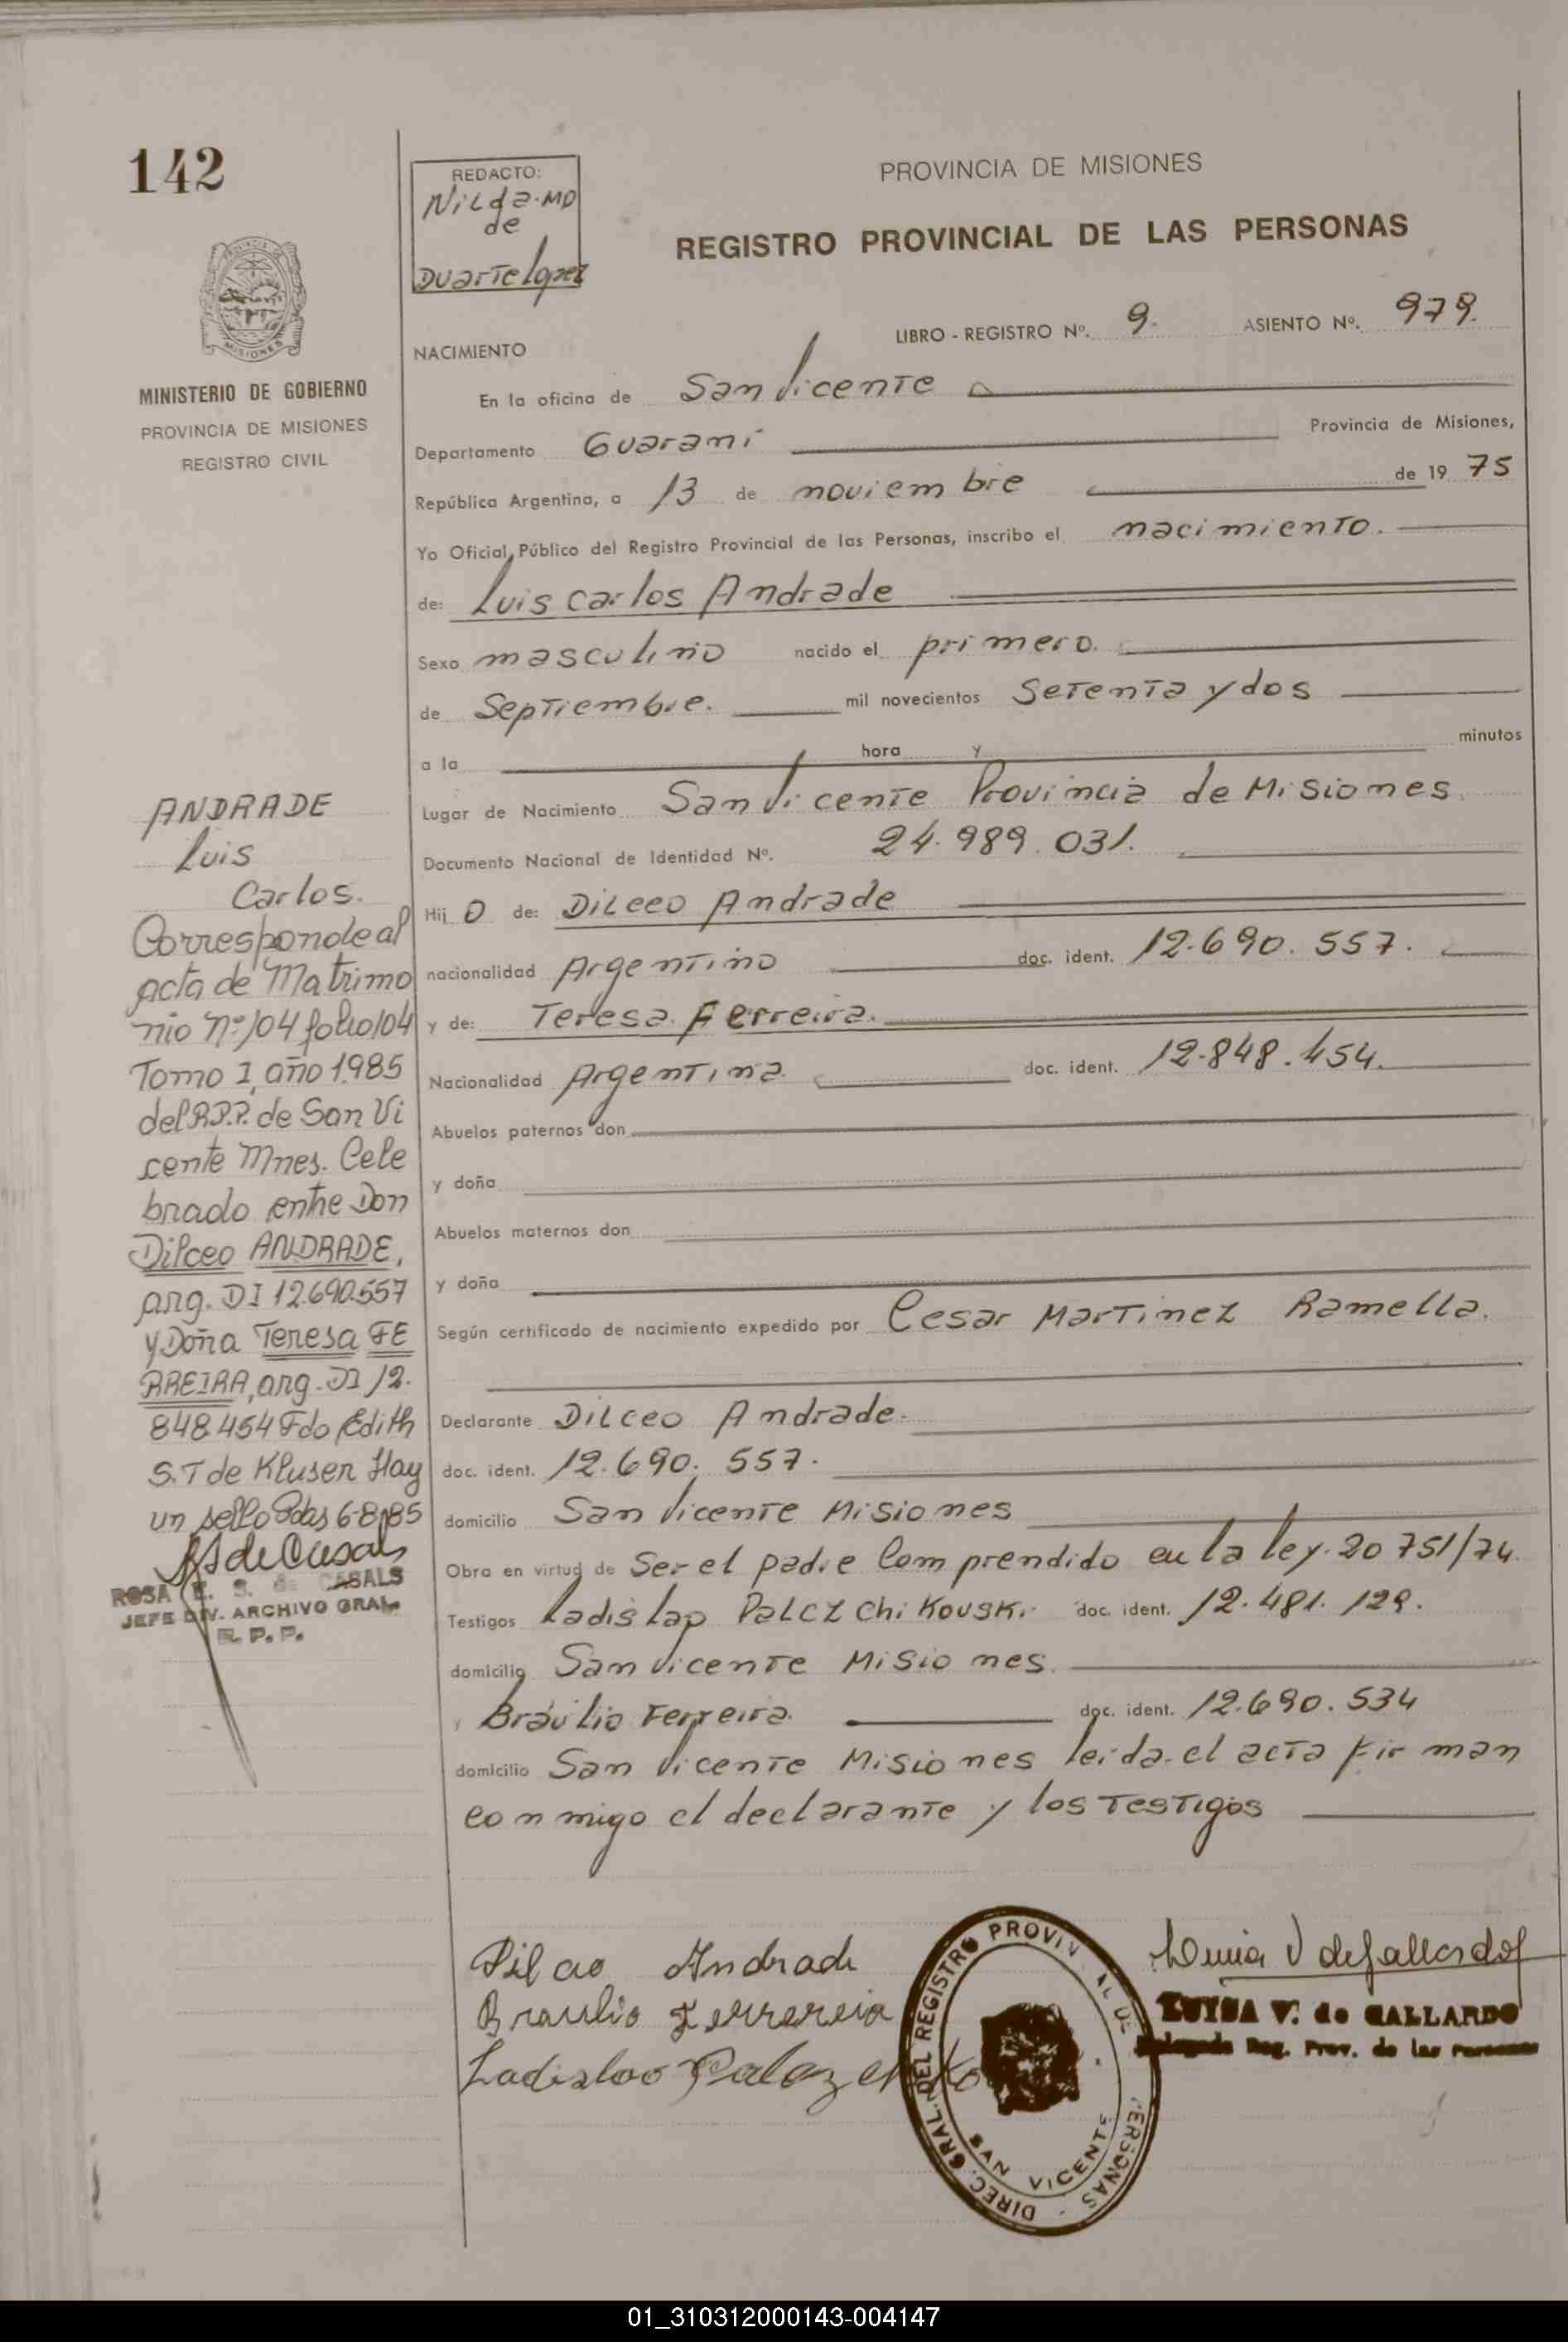 142
REDACTO:
Nilda. MD
de
Duarte lopez
PROVINCIA DE MISIONES
REGISTRO PROVINCIAL DE LAS PERSONAS
MISIONES
MINISTERIO DE GOBIERNO
PROVINCIA DE MISIONES
REGISTRO CIVIL
LIBRO - REGISTRO Nº. 9. ASIENTO Nº. 979.
NACIMIENTO
En la oficina de San Vicente
Departamento Guarani Provincia de Misiones,
República Argentina, a 13 de noviembre de 19 75
Yo Oficial Público del Registro Provincial de las Personas, inscribo el nacimiento.
de: Luis Carlos Andrade
Sexo masculino nacido el primero.
de Septiembre. mil novecientos Setenta y dos
a la hora y minutos
Lugar de Nacimiento San Vicente Provincia de Misiones
Documento Nacional de Identidad Nº. 24.989.031.
Hij o de: Dilceo Andrade
nacionalidad Argentino doc. ident. 12.690.557.
y de: Teresa Ferreira.
Nacionalidad Argentina doc. ident. 12.848.454.
Abuelos paternos don
y doña
Abuelos maternos don
y doña
Según certificado de nacimiento expedido por Cesar Martinez Ramella.
Declarante Dilceo Andrade.
doc. ident. 12.690.557.
domicilio San Vicente Misiones
Obra en virtud de Ser el padre Comprendido en la ley. 20 751/74.
Testigos Ladislao Palczchikouski. doc. ident. 12.481.129.
domicilio San Vicente Misiones.
y Braulio Ferreira. doc. ident. 12.690.534
domicilio San Vicente Misiones leida el acta firman
conmigo el declarante y los testigos
ANDRADE
Luis
Carlos.
Corresponde al
acta de Matrimo
nio Nº 104 folio 104
Tomo I, año 1985
del R.P.P. de San Vi
cente Mnes. Cele
brado entre Don
Dilceo ANDRADE,
arg. DI 12.690.557
y Doña Teresa FE
RREIRA, arg. DI 12.
848.454 Fdo Edith
S.T de Kluser Hay
un sello Pdas 6-8-85
ROSA E. S. de CASALS
JEFE DIV. ARCHIVO GRAL.
R. P. P.
Dilceo Andrade
Braulio Ferrereia
Ladislao
DIREC. GRAL. DEL REGISTRO PROVIN AL DE PERSONAS
SAN VICENTE
LUISA V. de GALLARDO
Delegada Reg. Prov. de las Personas
01_310312000143-004147